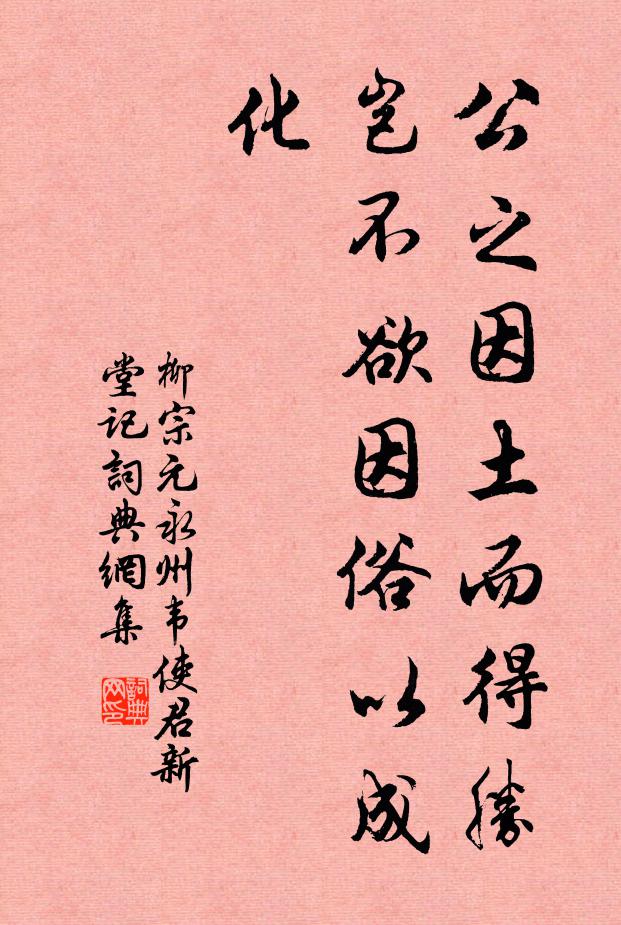 公之因土而得勝
豈不欲因俗以成
化
柳宗元永州韦使君新
堂记詞典網集
詞典
网印